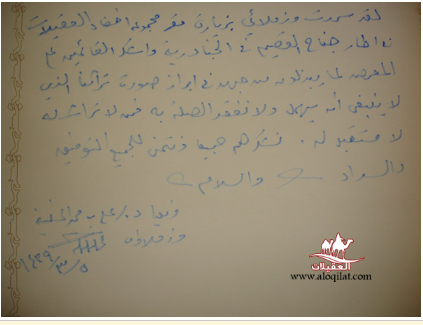 لقد سررت وزملائي بزيارة مقر مجموعة أحفاد العقيلات
في اطار جناح القصيم في الجنادرية واشكر القائمين على
المعرض لما يبذلون من جهد في ابراز صورة تراثنا الذي
لا ينبغي أن يهمل ولا نفقد الصلة به فمن لا تراث له
لا مستقبل له . نشكرهم جميعا ونتمنى للجميع التوفيق
والسداد والسلام
د. علي بن
وزملاؤه
العقيلات
www.aloqilat.com